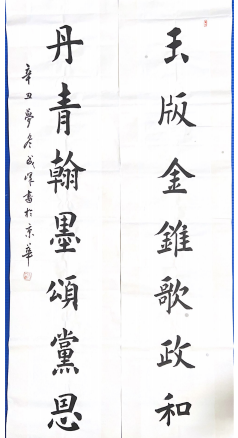 玉版金錐歌政和
丹青翰墨頌黨恩
辛丑夢冬成澤書於京華